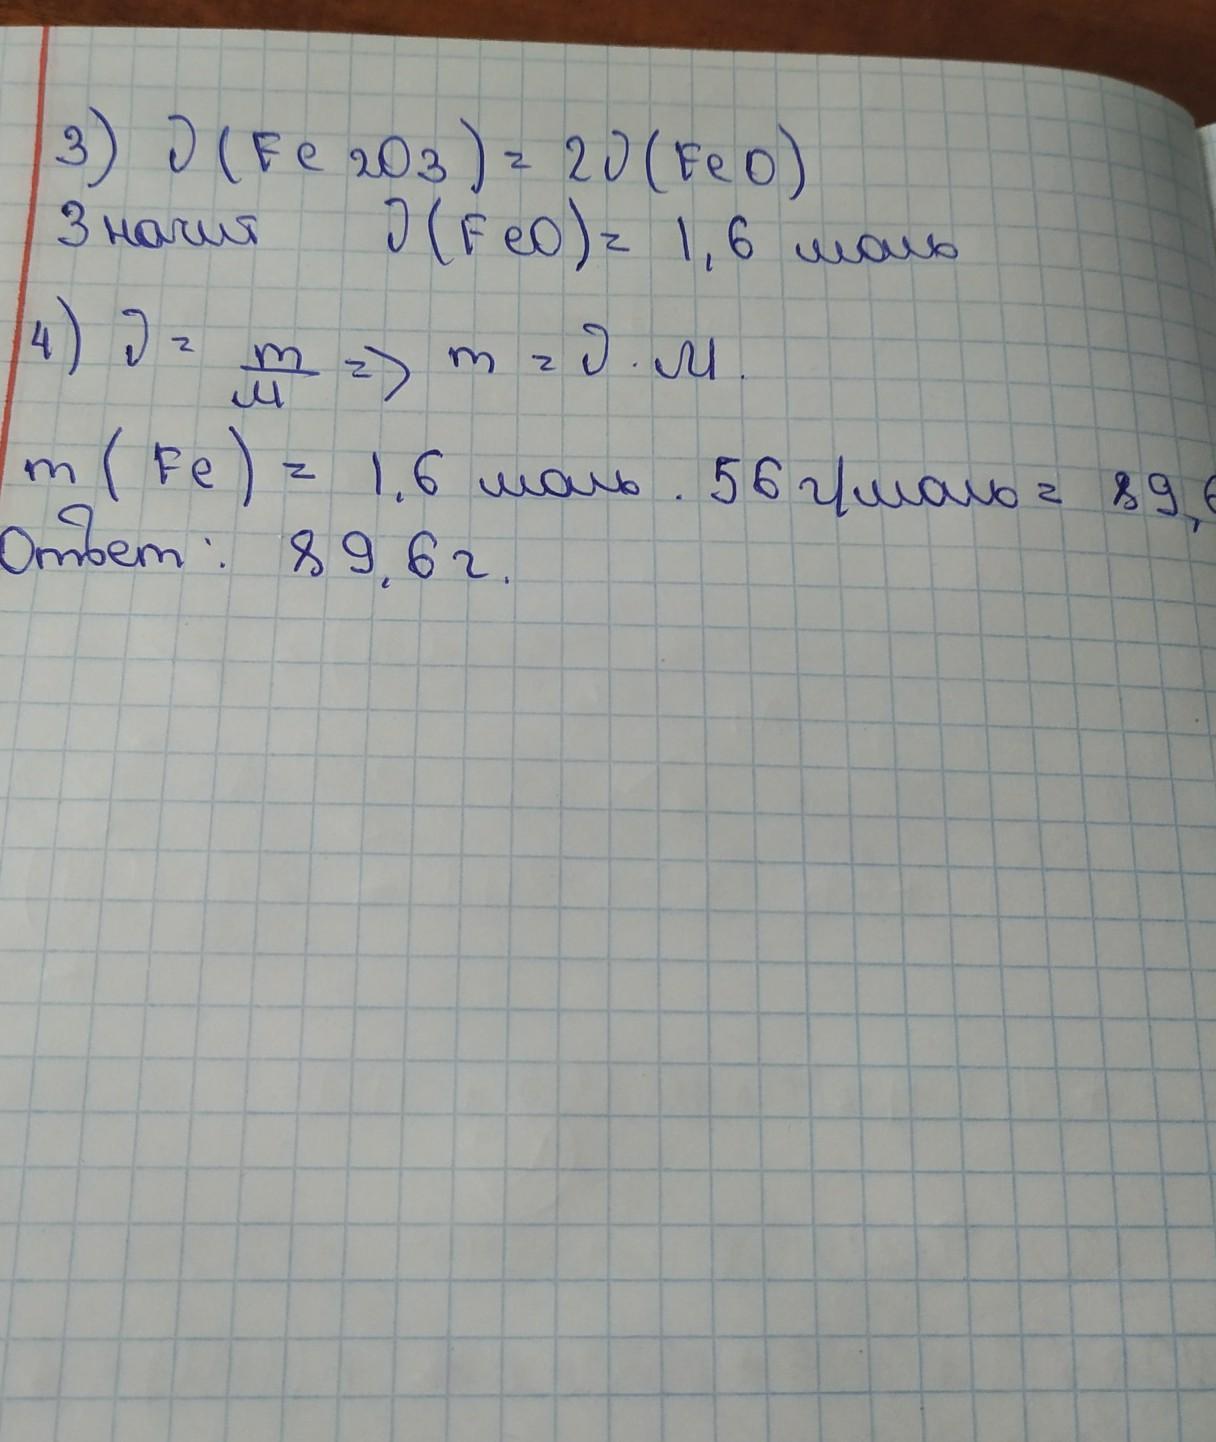 3) ν(Fe2O3) = 2ν(FeO)
Значит ν(FeO) = 1,6 моль
4) ν = m/M => m = ν · M.
m(Fe) = 1,6 моль · 56 г/моль = 89,6
Ответ: 89,6 г.